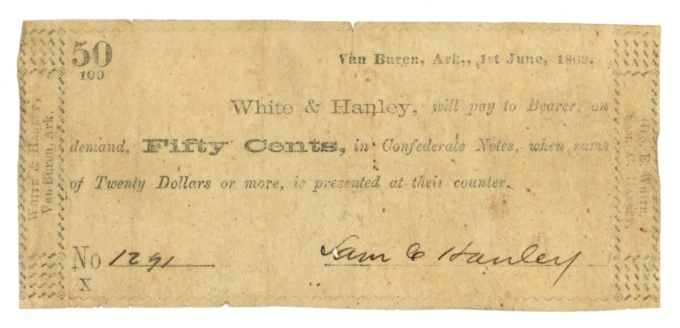 50
100
Van Buren, Ark., 1st June, 1862.
White & Hanley, will pay to Bearer, on
demand, Fifty Cents, in Confederate Notes, when sums
of Twenty Dollars or more, is presented at their counter.
No 1291
X
Sam C Hanley
WHITE & HANLEY,
Van Buren, Ark.
GEO. E. WHITE,
SAM. C. HANLEY.